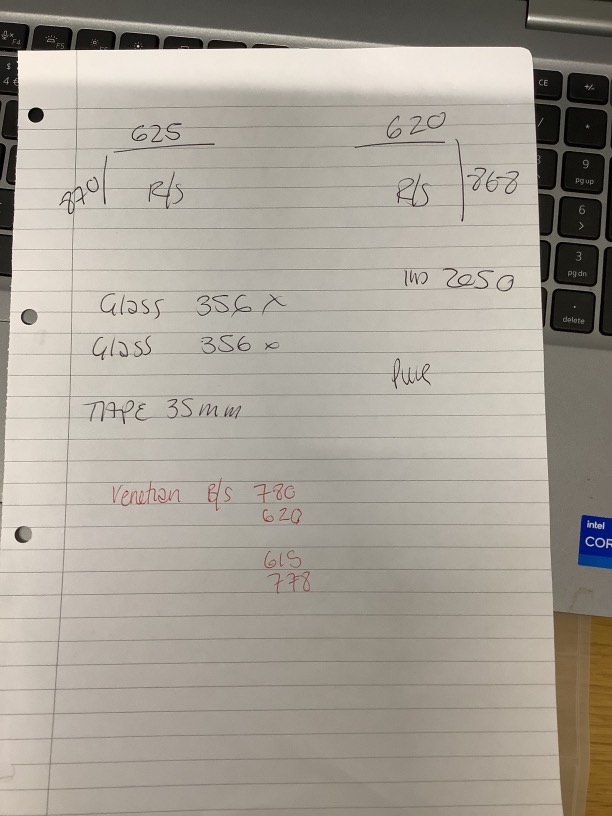 625
870 R/S
620
R/S 868
IND 2050
Glass 356 x
Glass 356 x
Pure
TAPE 35mm
Venetian R/S 780
620
615
778
F4
F5
$
4 €
CE
+/-
/
*
9
pg up
6
>
3
pg dn
.
delete
intel
COR